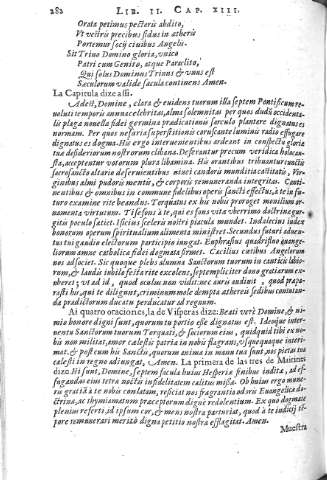 282 LIB. II. CAP. XIII.
Orata petimus pectoris abdito,
Vt vestris precibus sidus in ætheris
Portemur socij ciuibus Angelis.
Sit Trino Domino gloria, vnico
Patri cum Genito, atque Paraclito,
Qui solus Dominus Trinus & vnus est
Sæculorum valide sæcula continens Amen.
La Capitula dize assi.
Adest, Domine, clara & euidens tuorum illa septem Pontificum re-
uoluti temporis annua celebritas, alma solemnitas per quos dudũ occidenta-
lis plaga nouella fidei germina prædicationis sarculo plantare dignatus es
normam. Per quos nefaria superstitionis caruscante luminis radio effugare
dignatus es dogma. His ergo interuenientibus ardeant in conspectu gloriæ
tuæ desideriorum nostrorum
sta, acceptentur votorum plura libamina. His orantibus tribuantur cunctis
sacrosancto altario deseruientibus niuei candoris munditia castitatis, Vir-
ginibus almi pudoris mentis, & corporis remuneranda integritas. Conti-
nentibus & omnibus in commune fidelibus operis sancti effectus, à te in fu-
turo examine rite beandus. Torquatus ex his nobis proroget monilium or-
namenta virtutum. Tisesons à te, qui es fons vitæ vberrimo doctrinæ gur-
gitis poculo satiet. Isicius scelerũ nostris piacula mundet. Indalecius indeco
honorum operum spiritualium alimenta ministret. Secundus futuri aduen-
tus tui gaudio electorum participio iungat. Euphrasius quadrifluo euange-
liorum amne catholica fidei dogmata firmet. Cecilius cœtibus Angelorum
nos adsociet. Sic quoque plebs alumna Sanctorum tuorum in cantica iubilo-
rum, & laudis iubila fescita rite excolens, septempliciter dono gratiarum ex-
uberet vt ad id, quod oculus non vidit nec auris audiuit, quod præpa-
rasti his, qui te diligunt, criminum mole dempta æthereis sedibus conlætan-
da prædictorum ducatu perducatur ad regnum.
Ai quatro oraciones, la de Visperas dize: Beati verè Domine, & ni-
mio honore digni sunt, quorum tu portio esse dignatus es. Ideoque inter-
uentu Sanctorum tuorum Torquati, & sociorum eius, quidquid tibi ex no-
bis non militat, amor cælestis patriæ in nobis flagrans, vsquequaque interi-
mat. & post cum his Sanctis, quorum animæ in manu tua sunt, nos pietas tua
cælesti in regno adiungat, Amen. La primera de las tres de Matines
dize. Hi sunt, Domine, septem facula huius Hesperiæ finibus indita, ad ef-
fugandos enim tetra noctis infidelitatem calitus missa. Ob huius ergo mune-
ris gratiã à te nobis conlatam, reficiat nos fragrantia adoris Euangelica do-
ctrina, ac thymiamatum præceptorum digne redolentium. Ex quo dogmate
plenius referti, ad ipsum cor, & mens nostra parturiat, quod à te iudicij tẽ-
pore remunerari meritò digna petitio nostra efflagitat. Amen.
Muestra